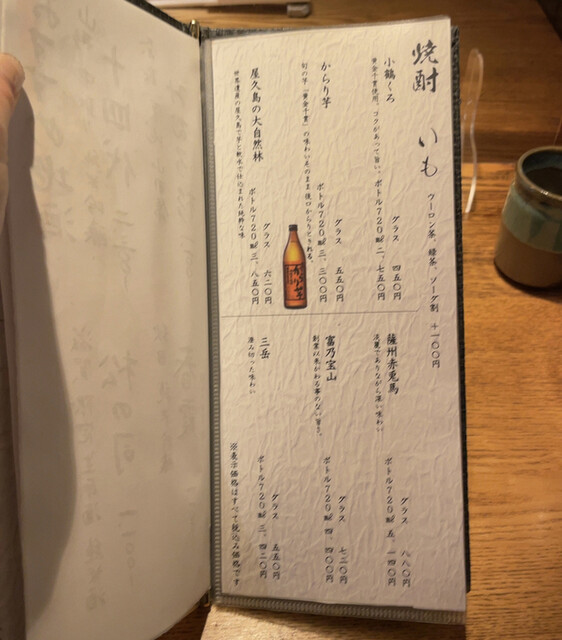 焼酎 いも
ウーロン茶、緑茶、ソーダ割 +一〇〇円
小鶴くろ
黄金千貫使用。コクがあって旨い。
グラス 四五〇円
ボトル720㎖ 二、七五〇円
からり芋
幻の芋「黄金千貫」の味わいそのまま後口からりとキれる。
グラス 五五〇円
ボトル720㎖ 三、三〇〇円
屋久島の大自然林
世界遺産の屋久島で芋と軟水で仕込まれた純粋な味
グラス 六二〇円
ボトル720㎖ 三、八五〇円
薩州赤兎馬
淡麗でありながら深い味わい
グラス 八八〇円
ボトル720㎖ 五、一四〇円
富乃宝山
創業以来かわる事のない旨さ。
グラス 七二〇円
ボトル720㎖ 四、四〇〇円
三岳
澄み切った味わい
グラス 五五〇円
ボトル720㎖ 三、四二〇円
※表示価格はすべて税込み価格です